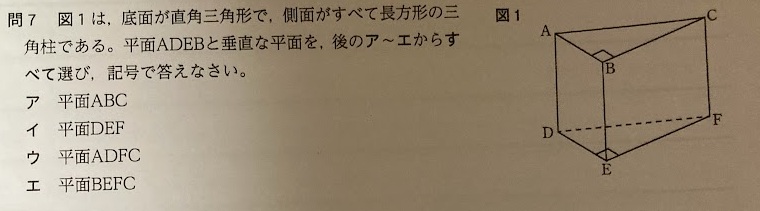 問7 図1は，底面が直角三角形で，側面がすべて長方形の三
角柱である。平面ADEBと垂直な平面を，後のア～エからす
べて選び，記号で答えなさい。
ア 平面ABC
イ 平面DEF
ウ 平面ADFC
エ 平面BEFC
図1
A
C
B
D
F
E